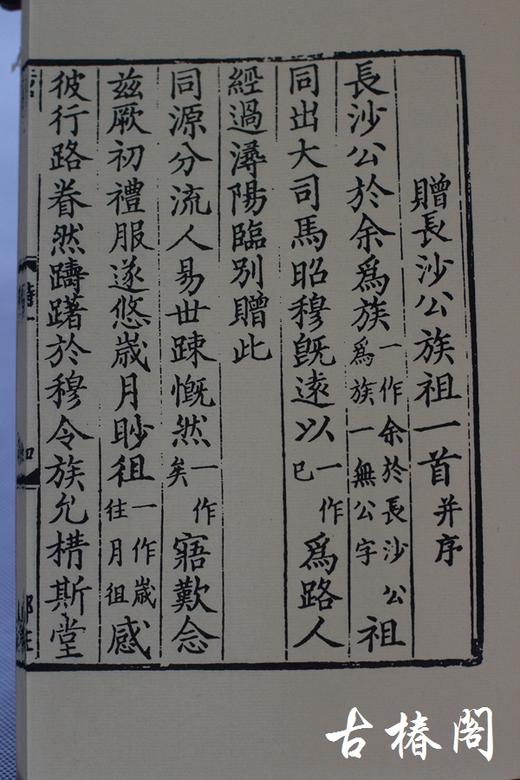 贈長沙公族祖一首并序
長沙公於余爲族一作余於長沙公爲族一無公字祖
同出大司馬昭穆旣遠以一作已爲路人
經過潯陽臨別贈此
同源分流人易世踈慨然一作矣寤歎念
玆厥初禮服遂悠歲月眇徂一作歲往月徂感
彼行路眷然躊躇於穆令族允構斯堂
古椿閣